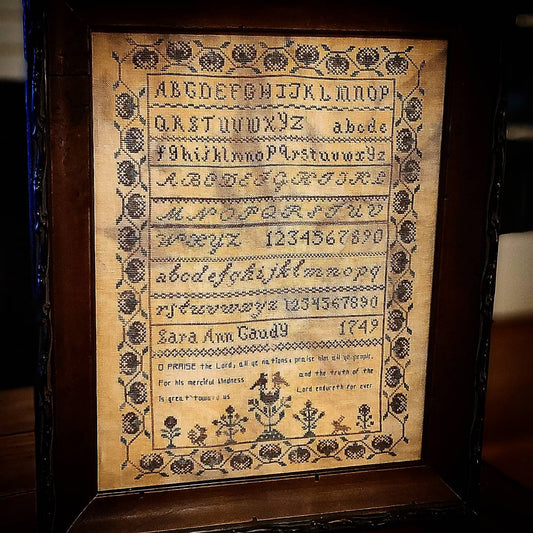 ABCDEFGHIJKLMNOP
QRSTUVWXYZ abcde
fghijklmnopqrstuvwxyz
ABCDEFGHIJKL
MNOPQRSTUV
WXYZ 1234567890
abcdefghijklmnopq
rstuvwxyz 1234567890
Sara Ann Gaudy 1749
O PRAISE the Lord, all ye nations; praise him all ye people.
For his merciful kindness and the truth of the
is great toward us Lord endureth for ever